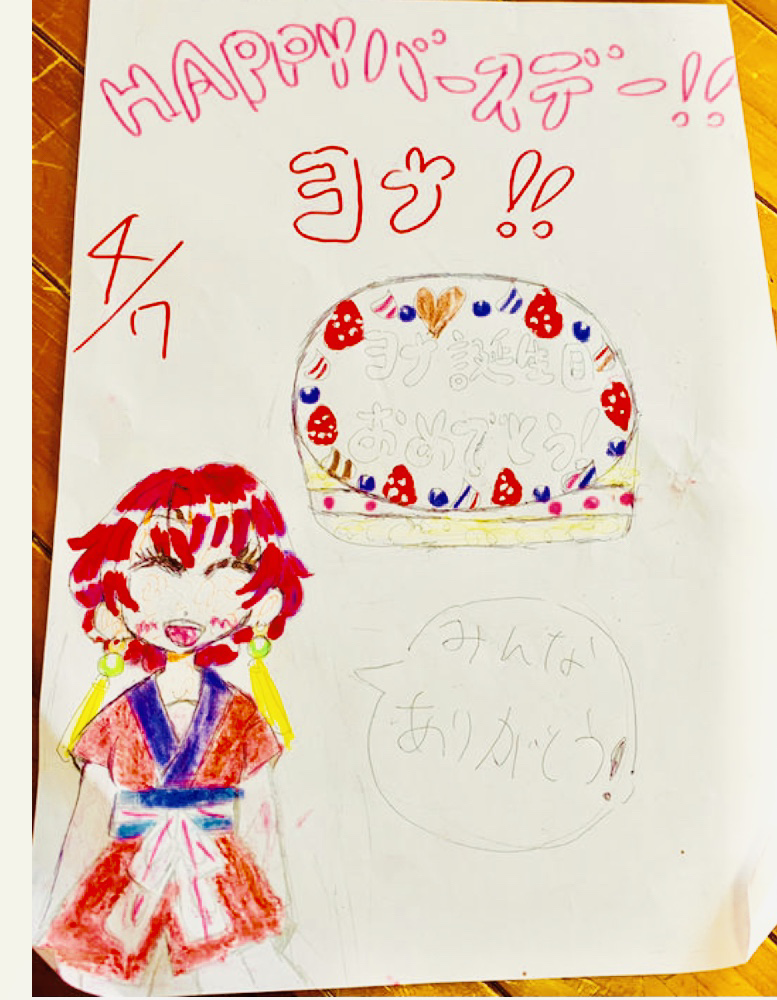 HAPPYバースデー!!
ヨナ!!
4/7
ヨナ誕生日
おめでとう!
みんな
ありがとう!